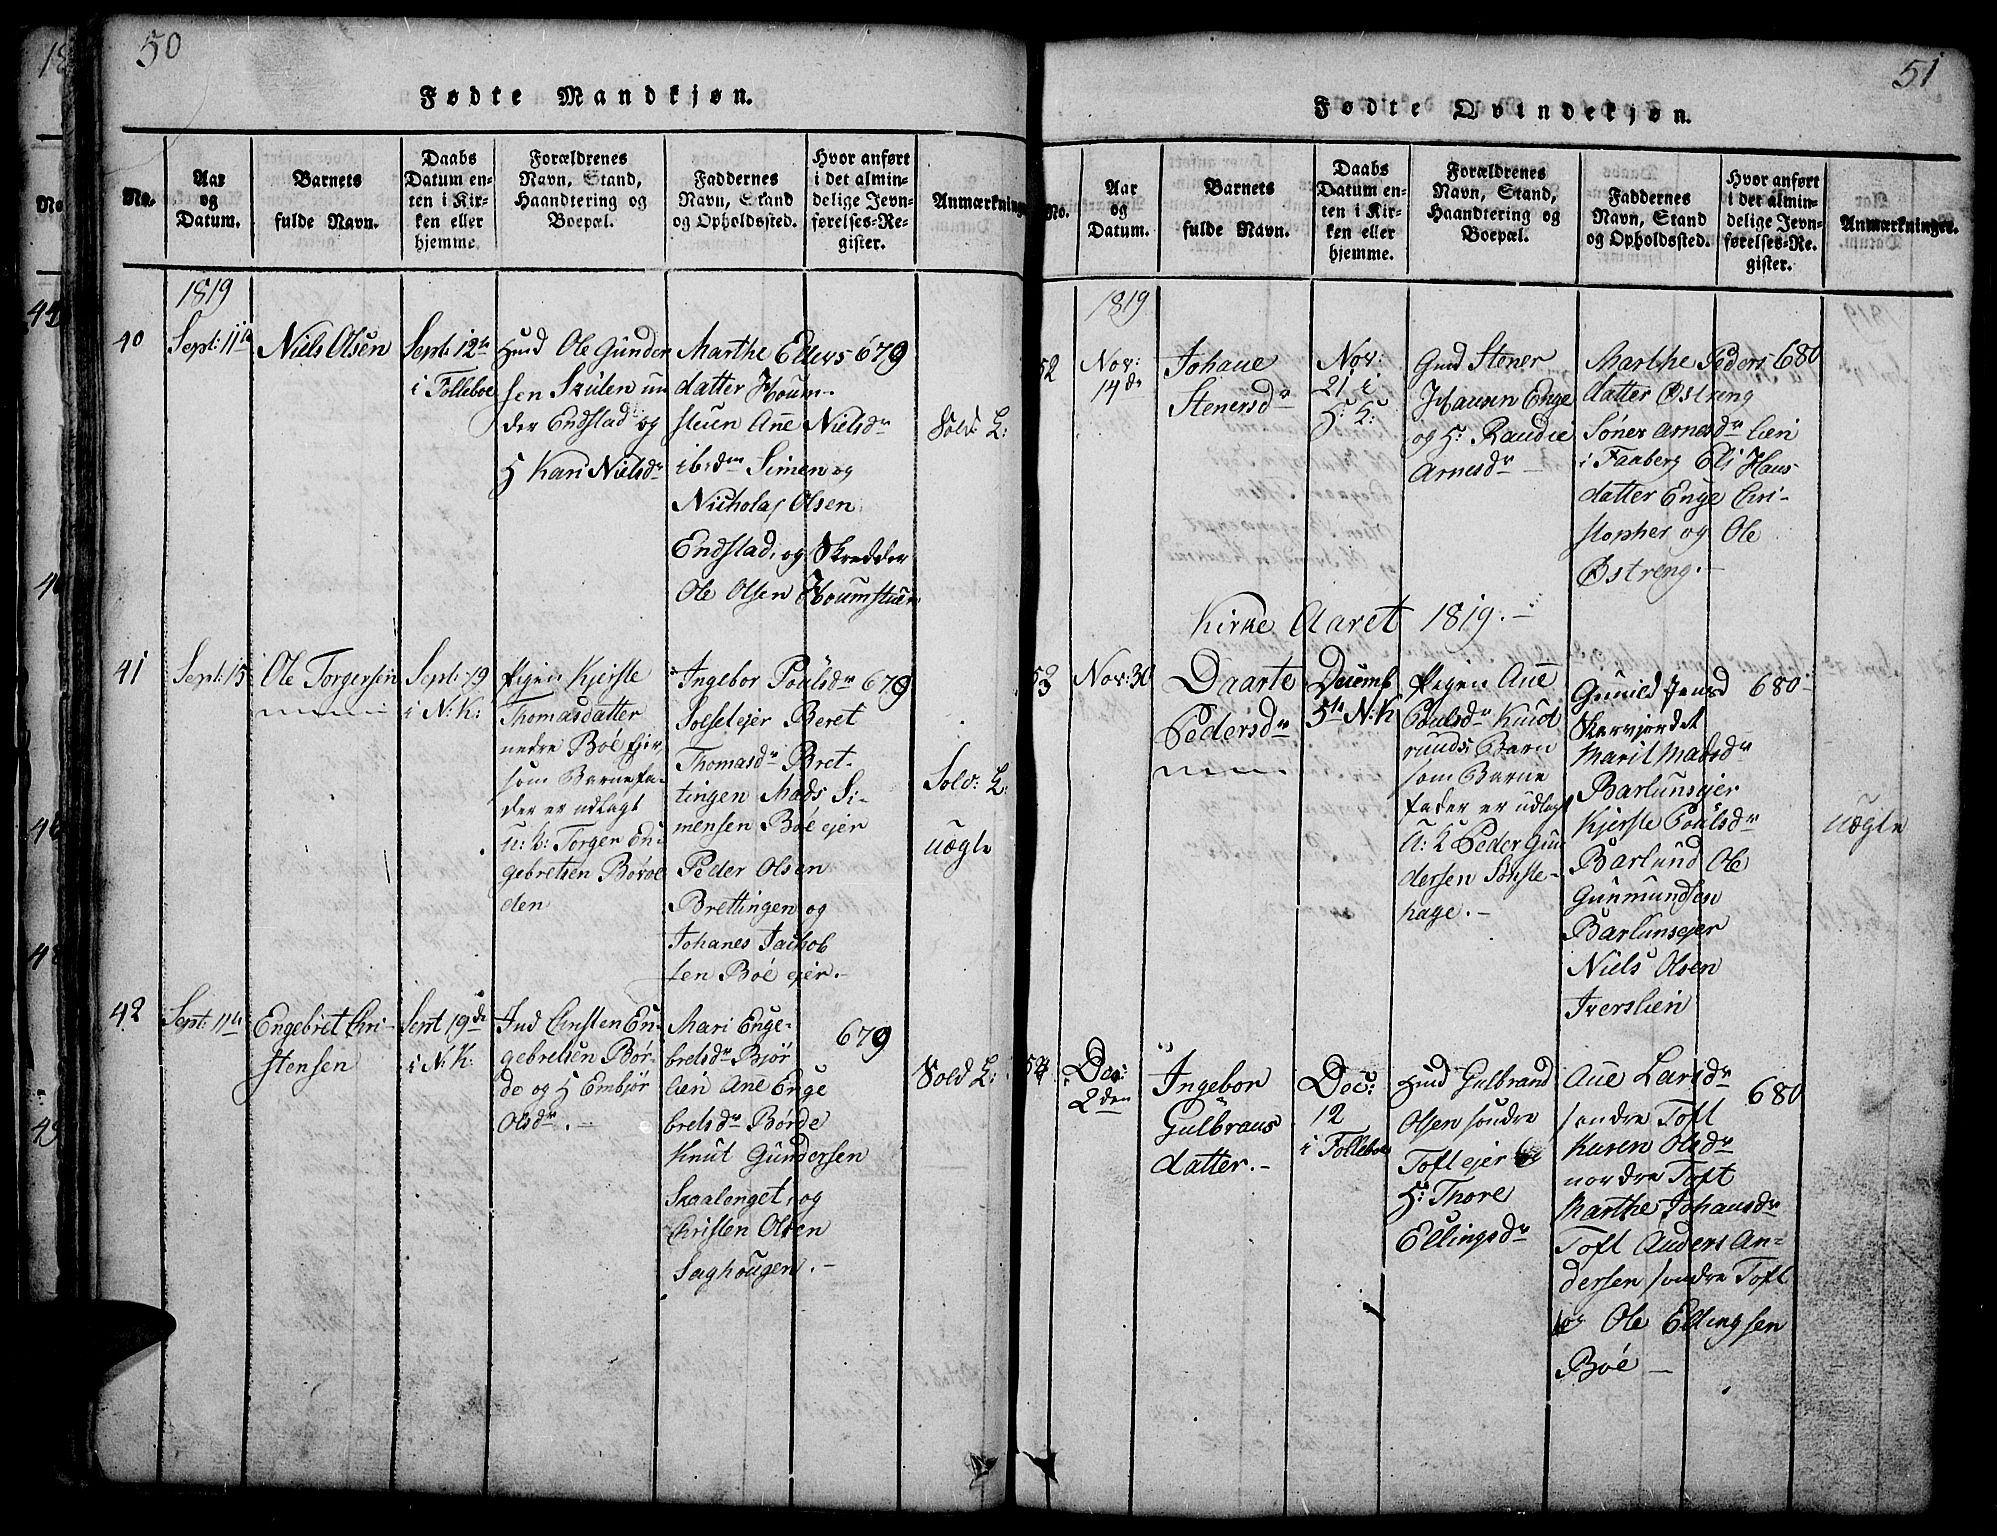 50
Fødte Mandkjøn.
No.
Aar
og
Datum.
Barnets
fulde Navn.
Daabs
Datum en-
ten i Kir-
ken eller
hjemme.
Forældrenes
Navn, Stand,
Haandtering og
Boepæl.
Faddernes
Navn, Stand
og Opholdssted.
Hvor anført
i det almin-
delige Jevn-
førelses-Re-
gister.
Anmærkning
1819
40
Sept: 11te
Niels Olsen
Sept: 12te
i Folleboe
Huusmd Ole Gunder
sen Skulen un
der Endstad og
H Kari Nielsdr
Marthe Ellevs
datter Houm-
stuen Ane Nielsdr
ibidm Simen og
Nicholaj Olsen
Endstad, og Skredder
Ole Olsen Houmstuen
679
Sold: L:
41
Sept: 15
Ole Torgersen
Sept: 19
i N: K:
Pigen Kjerste
Thomasdatter
nedre Böe ejer
som Barnefa-
der er udlagt
U: K: Torger En
gebretsen Böröe
den
Ingebor Poulsdr
Solselejer Beret
Thomasdr Bret-
tingen Mads Si-
mensen Böe ejer
Peder Olsen
Brettingen og
Johanes Jachob
sen Böe ejer.-
679
Sold: L:
uægte
42
Sept: 11te
Engebret Chri-
stensen
Sept 19de
i N: K:
Ind Christen En-
gebretsen Bör-
de og H Embjör
Olsdr.-
Mari Enge-
bretsdr Björ
lien Ane Enge
bretsdr Börde
Knut Gundersen
Skaalenget, og
Christen Olsen
Saghougen.-
679
Sold L:
51
Fødte Qvindekjøn.
No.
Aar
og
Datum.
Barnets
fulde Navn.
Daabs
Datum en-
ten i Kir-
ken eller
hjemme.
Forældrenes
Navn, Stand,
Haandtering og
Boepæl.
Faddernes
Navn, Stand
og Opholdssted.
Hvor anført
i det almin-
delige Jevn-
førelses-Re-
gister.
Anmærkninger.
1819
52
Nov:
14de
Johane
Stenersdr
Nov:
21 i
H: K:
Gmd Stener
Hansen Enge
og H: Randie
Arnesdr
Marthe Peders
datter Østreng
Söner Arnesdr Lien
i Faaberg Eli Hans
datter Enge Chri-
stopher og Ole
Østreng.-
680
Kirke Aaret 1819.-
53
Nov: 30
Daarte
Pedersdr
Decemb
5te N: K
Pigen Ane
Poulsdr Knut
ruuds Barn
som Barne
fader er udlagt
U: K Peder Gun
dersen Sönste-
hage.-
Gunild Jensd
Skarvjordet
Marit Madsdr
Barlunsejer
Kjerste Poulsdr
Barlund Ole
Gunmundsen
Barlunsejer
Niels Olsen
Iverslien
680
Uægte
54
Dec:
2den
Ingebor
Gulbrans
datter.-
Dec:
12
i Folleboe
Huusmd Gulbrand
Olsen söndre
Toftejer og
H: Thore
Ellingsdr
Ane Larsdr
söndre Toft
Karen Olsdr
nordre Toft
Marthe Johansdr
Toft Anders An-
dersen söndre Toft
og Ole Ellingsen
Böe -
680